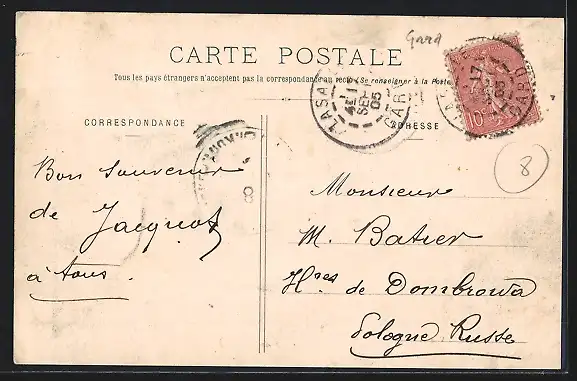 Gard
CARTE POSTALE
Tous les pays étrangers n'acceptent pas la correspondance au recto (Se renseigner à la Poste)
LASA
SEPT
05
GARD
17
05
GARD
10
CORRESPONDANCE
ADRESSE
8
Bon souvenir
de Jacquot
à tous.
Monsieur
M. Batier
Hres de Dombrowa
Pologne Russe